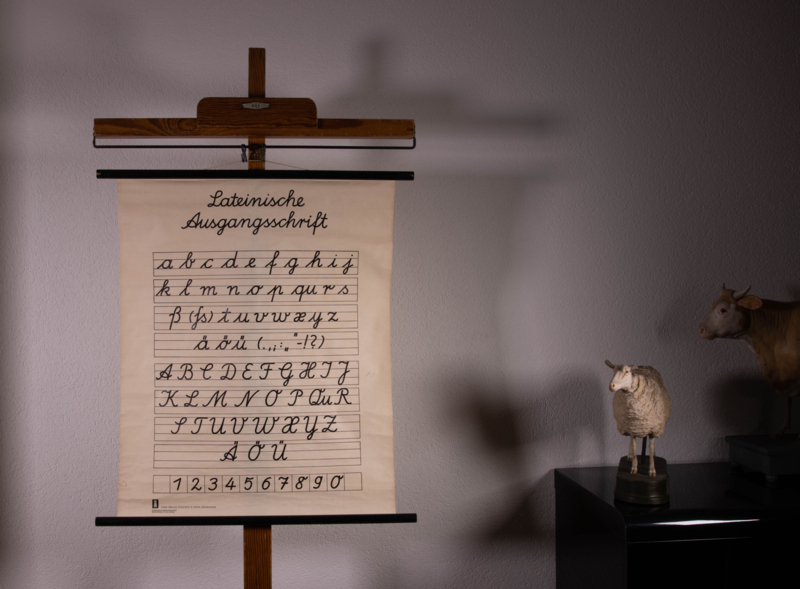 Lateinische
Ausgangsschrift
a b c d e f g h i j
k l m n o p qu r s
ß (ſs) t u v w x y z
ä ö ü (.,;:„ “-!?)
A B C D E F G H I J
K L M N O P Qu R
S T U V W X Y Z
Ä Ö Ü
1 2 3 4 5 6 7 8 9 0